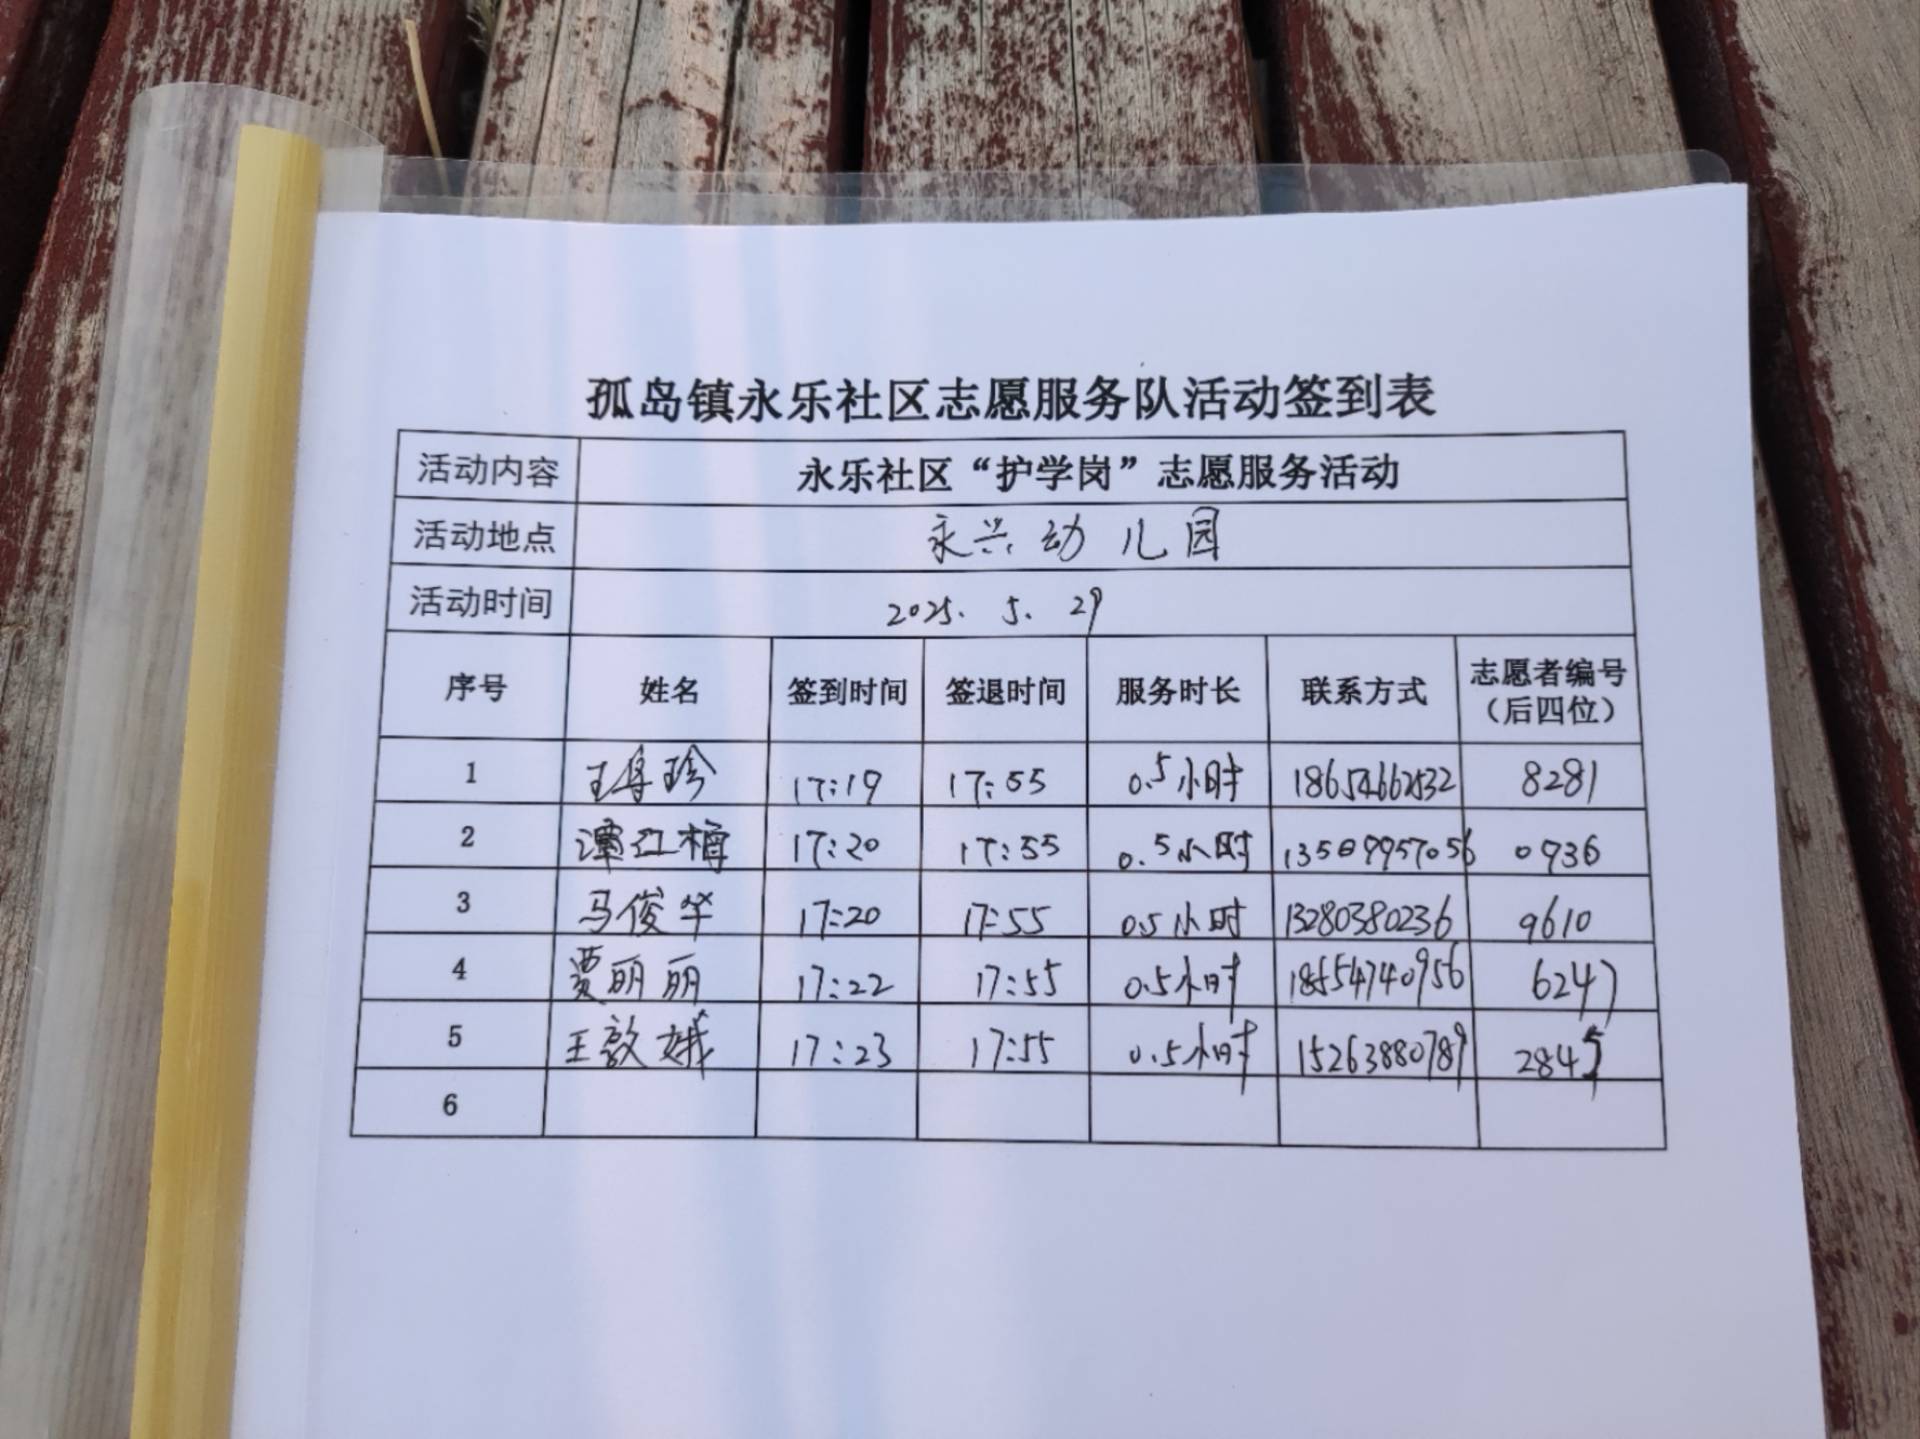 孤岛镇永乐社区志愿服务队活动签到表
活动内容 永乐社区“护学岗”志愿服务活动
活动地点 永兴幼儿园
活动时间 2025. 5. 29
序号 姓名 签到时间 签退时间 服务时长 联系方式 志愿者编号（后四位）
1 17:19 17:55 0.5小时 8281
2 17:20 17:55 0.5小时 0936
3 马俊华 17:20 17:55 0.5小时 13280380236 9610
4 贾丽丽 17:22 17:55 0.5小时 18554740956 6247
5 王敦娥 17:23 17:55 0.5小时 15263880789 2845
6